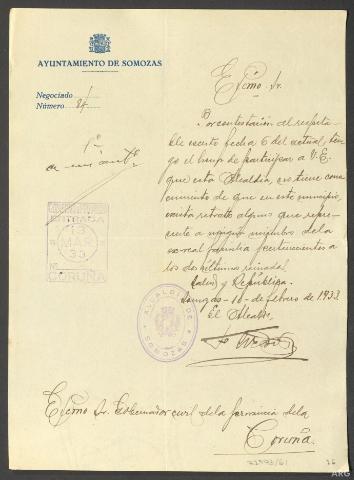 AYUNTAMIENTO DE SOMOZAS
Negociado 1
Número 84
Excmo Sr.
Por contestación al respeta-
ble escrito fecha 6 del actual, ten-
go el honor de participar a V.E.
que esta Alcaldía, no tiene cono-
cimiento de que en este municipio,
exista retrato alguno que repre-
sente a ningún miembro de la
ex-real familia pertenecientes a
los dos últimos reinados.
Salud y República.
Somozas - 10 - de febrero de 1933
El Alcalde
ENTRADA
13
MAR
33
Nº
CORUÑA
ALCALDIA DE
SOMOZAS
Excmo Sr. Gobernador civil de la provincia de la
Coruña.
16
ARG